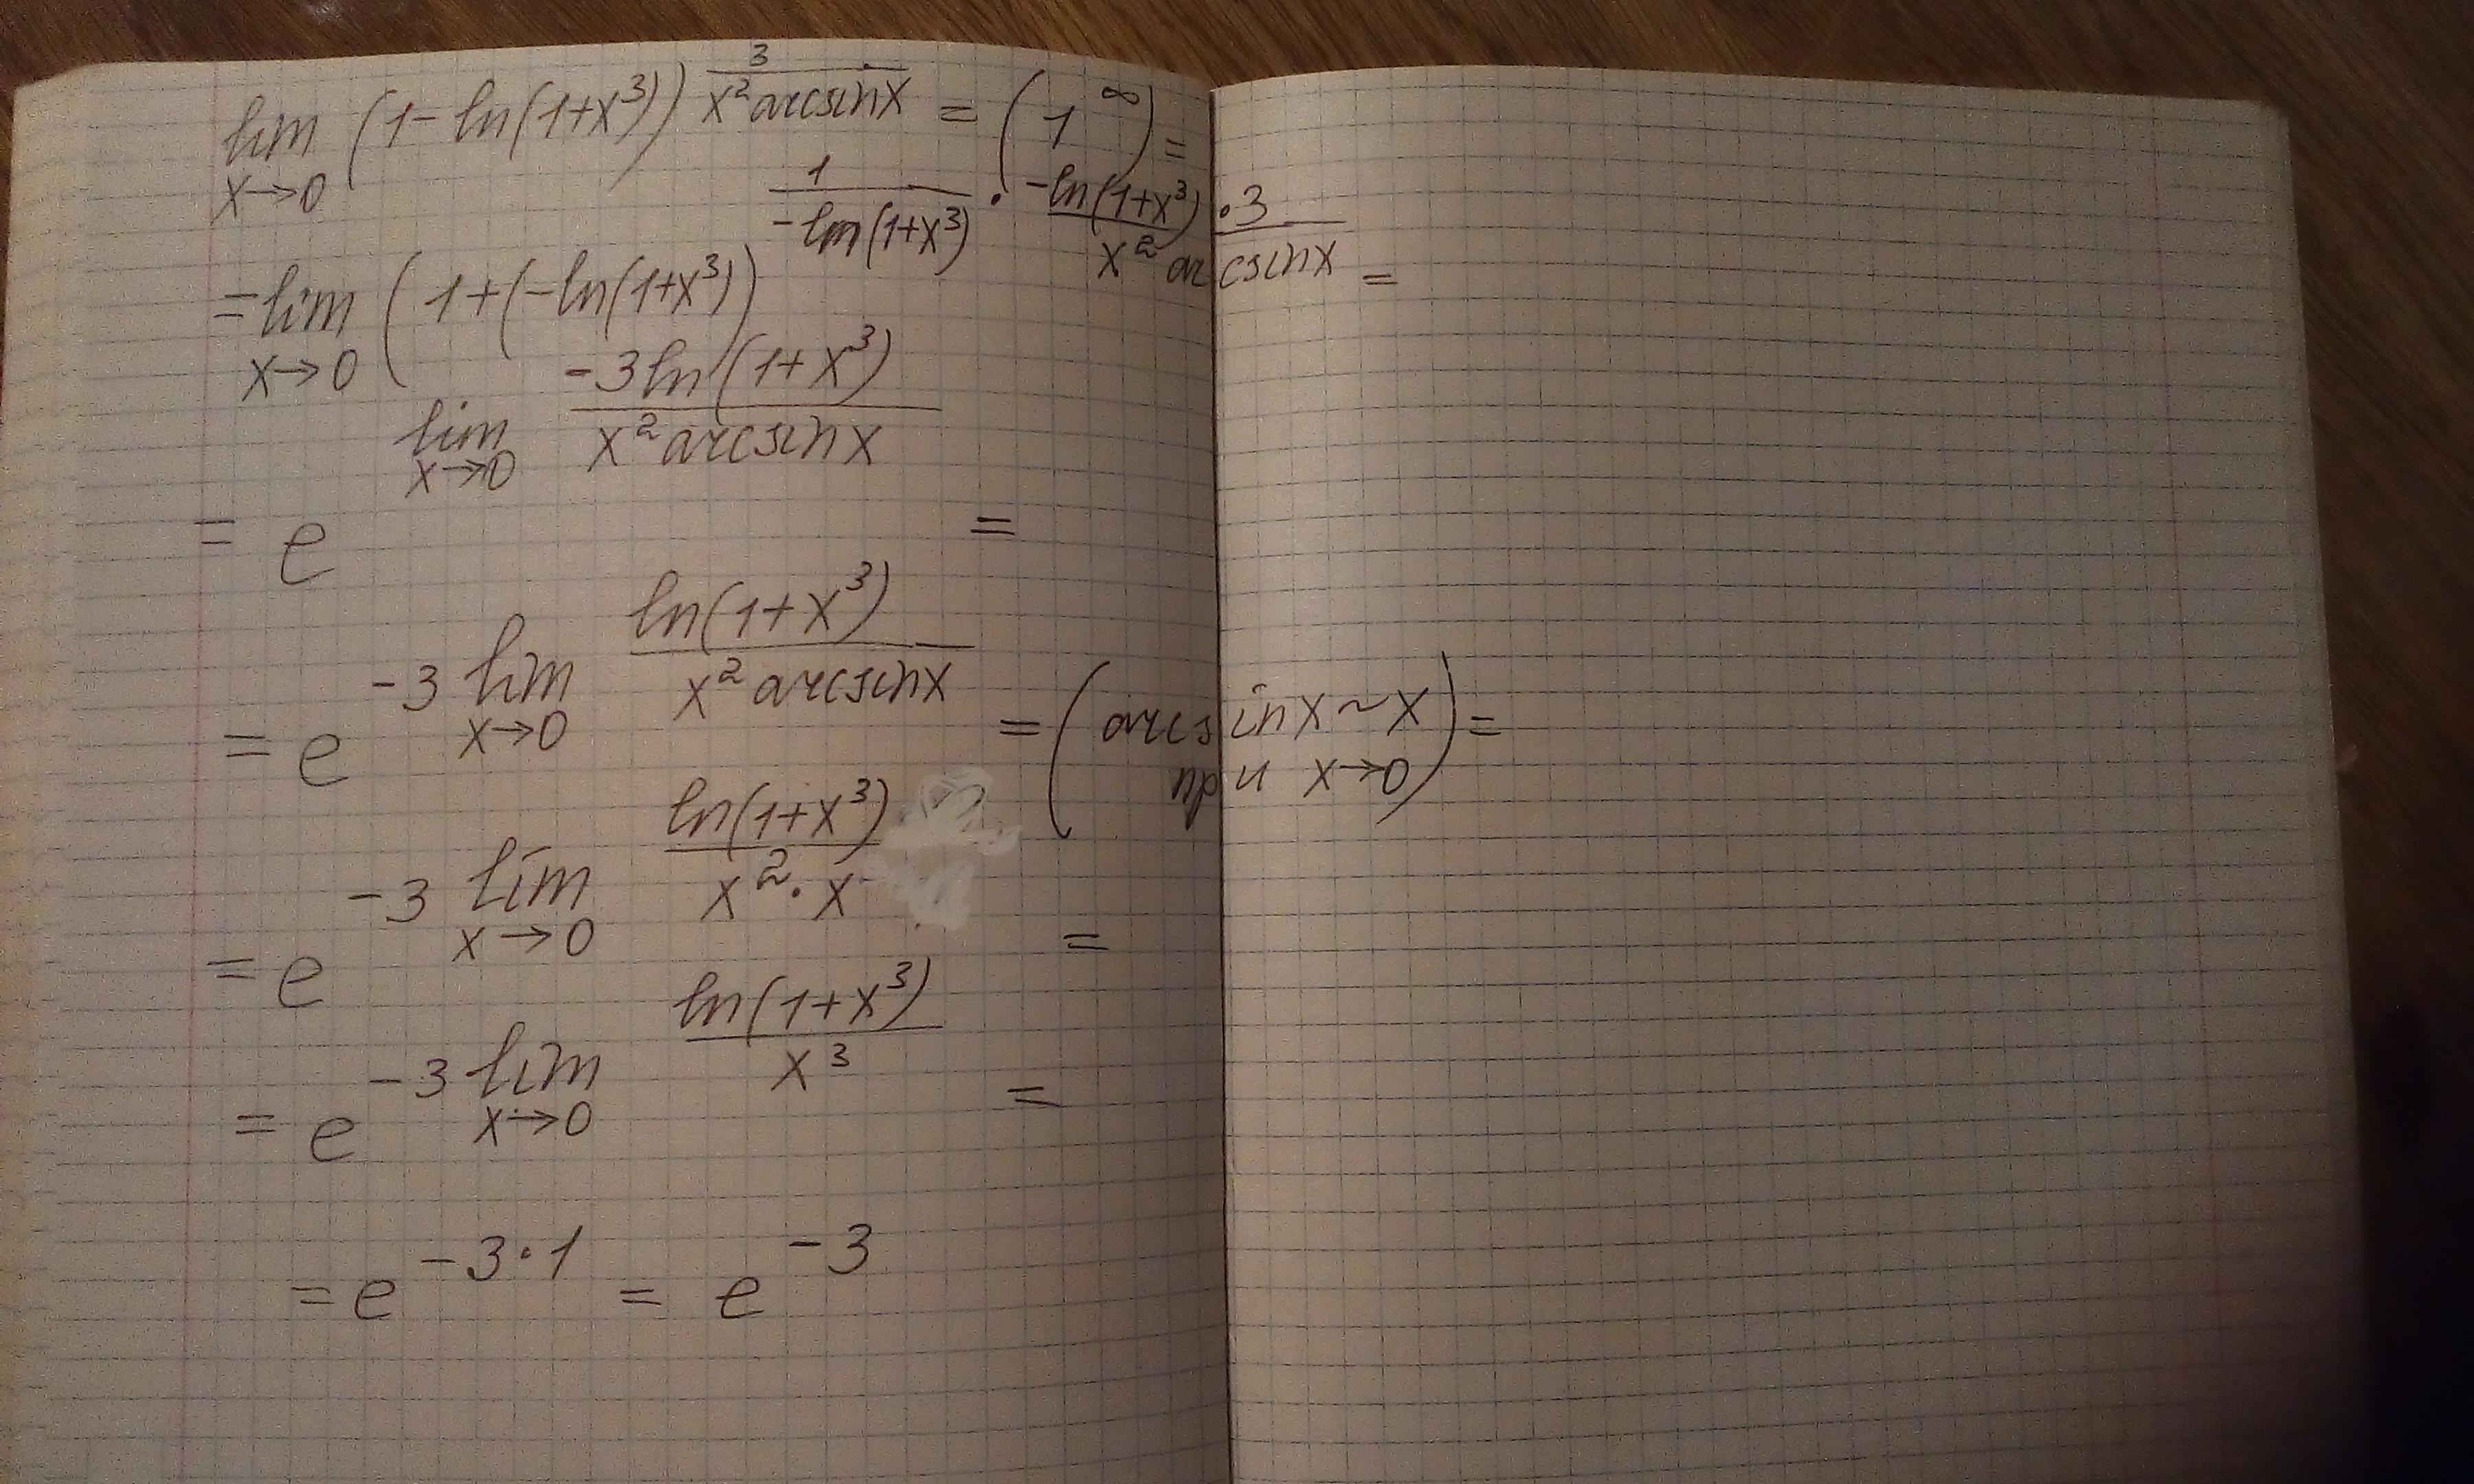 lim x→0 (1-ln(1+x³))^(3/(x² arcsinx)) = (1^∞) =
= lim x→0 (1+(-ln(1+x³))^(1/(-ln(1+x³)) · (-ln(1+x³)·3)/(x² arcsinx)) =
= e^(lim x→0 (-3ln(1+x³))/(x² arcsinx)) =
= e^(-3 lim x→0 ln(1+x³)/(x² arcsinx)) = (arcsinx~x при x→0) =
= e^(-3 lim x→0 ln(1+x³)/(x²·x)) =
= e^(-3 lim x→0 ln(1+x³)/x³) =
= e^(-3·1) = e^(-3)